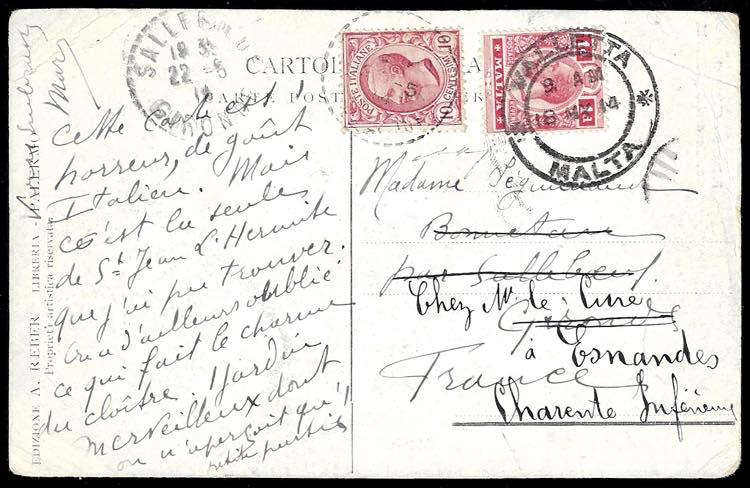 SALLEBŒUF
22 -5
14
GIRONDE
CARTOLINA
CARTE POSTALE
POSTE ITALIANE
CENTESIMI 10
MALTA
1d
VALLETTA
8 AM
18 MY 14
MALTA
EDIZIONE A. REBER LIBRERIA - PALERMO
Proprietà artistica riservata
Cette carte est l'
horreur, de goût
Italien. Mais
c'est la seule
de St Jean L'Hermite
que j'ai pu trouver.
On a d'ailleurs oublié
ce qui fait le charme
du cloître. 1 jardin
merveilleux dont
on n'aperçoit qu'1
petite partie
Madame
Bonnetan
par Sallebœuf
Gironde
France
Chez Mr de
à Esnandes
Charente Inférieure